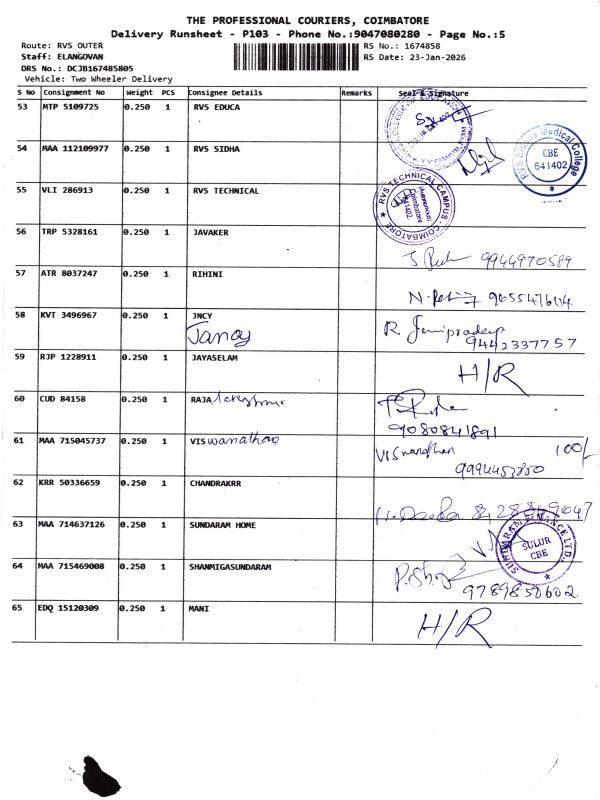 THE PROFESSIONAL COURIERS, COIMBATORE
Delivery Runsheet - P103 - Phone No.:9047080280 - Page No.:5
Route: RVS OUTER
RS No.: 1674858
Staff: ELANGOVAN
RS Date: 23-Jan-2026
DRS No.: DCJB167485805
Vehicle: Two Wheeler Delivery
S No Consignment No Weight PCS Consignee Details Remarks Seal & Signature
53 MTP 5109725 0.250 1 RVS EDUCA
54 MAA 112109977 0.250 1 RVS SIDHA
Medical College CBE 641402
55 VLI 286913 0.250 1 RVS TECHNICAL
RVS TECHNICAL CAMPUS - COIMBATORE (Autonomous) Coimbatore 641402
56 TRP 5328161 0.250 1 JAVAKER
9944970589
57 ATR 8037247 0.250 1 RIHINI
58 KVT 3496967 0.250 1 JNCY
Jancy
R.
9442337757
59 RJP 1228911 0.250 1 JAYASELAM H/R
60 CUD 84158 0.250 1 RAJA
9080841891
61 MAA 715045737 0.250 1 VISwanathan
100/-
62 KRR 50336659 0.250 1 CHANDRAKRR
63 MAA 714637126 0.250 1 SUNDARAM HOME
SUNDARAM FINANCE LTD. SULUR CBE
64 MAA 715469008 0.250 1 SHANMIGASUNDARAM
9789850602
65 EDQ 15120309 0.250 1 MANI H/R